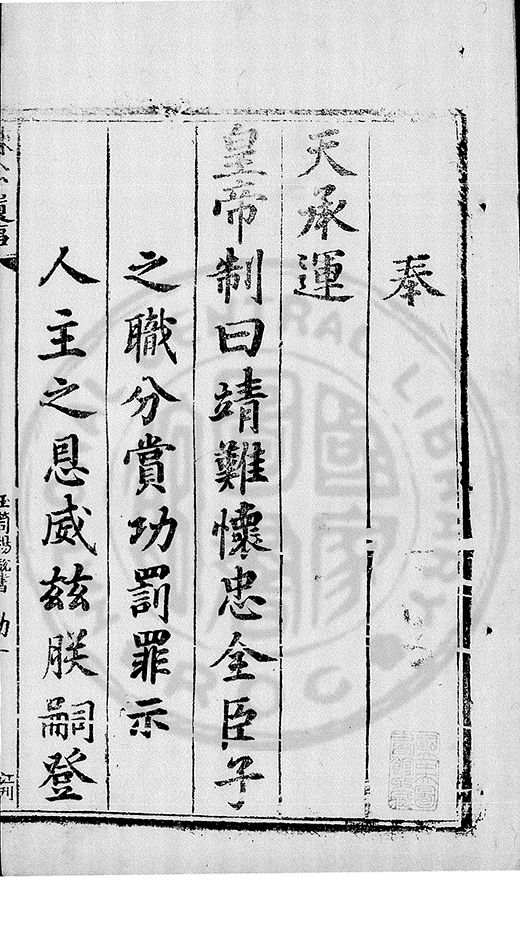 奉
天承運
皇帝制曰靖難懷忠全臣子
之職分賞功罰罪示
人主之恩威茲朕嗣登